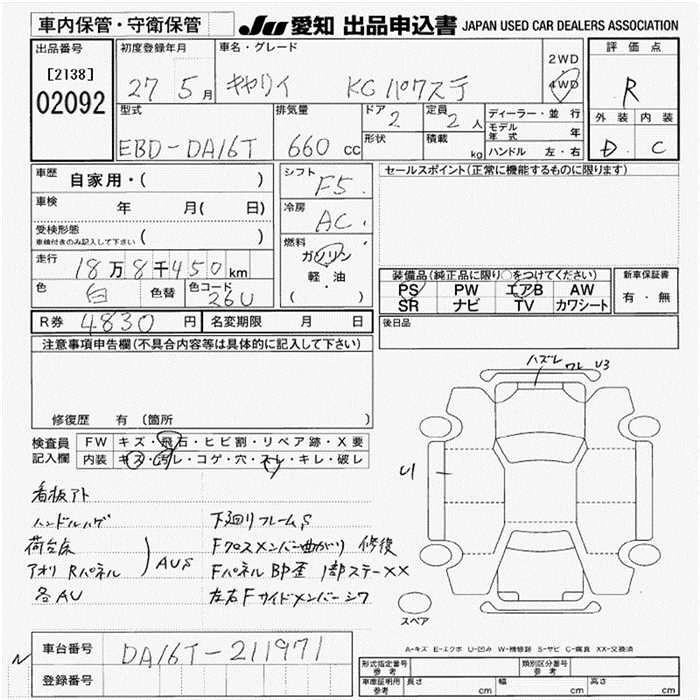 車内保管・守衛保管
JU 愛知 出品申込書 JAPAN USED CAR DEALERS ASSOCIATION
出品番号
[2138]
02092
初度登録年月
27 5 月
車名・グレード
キャリイ KC パワステ
2WD
4WD
評価点
R
外装 内装
D C
型式
EBD-DA16T
排気量
660 cc
ドア
2
形状
定員
2 人
積載
kg
ディーラー・並行
モデル年式 年
ハンドル 左・右
車歴 自家用・( )
車検 年 月( 日)
受検形態
車検付きのみ記入して下さい ( )
走行 18万8千450 km
色 白 色替 色コード 26U
シフト
F5
冷房
AC
燃料
ガソリン
軽・油
( )
セールスポイント(正常に機能するものに限ります)
装備品(純正品に限り○をつけてください)
PS PW エアB AW
SR ナビ TV カワシート
新車保証書
有・無
R券 4830 円 名変期限 月 日
後日品
注意事項申告欄(不具合内容等は具体的に記入して下さい)
修復歴 有 〔箇所 〕
検査員 記入欄
FW キズ・飛石・ヒビ割・リペア跡・X要
内装 キズ・汚レ・コゲ・穴・スレ・キレ・破レ
ハズレ ワレ U3
U1
スペア
看板アト
ハンドルハゲ 下廻りフレームS
荷台床 Fクロスメンバー曲がり 修復
アオリ Rパネル AUS Fパネル BP歪 1部ステーXX
各AU 左右Fサイドメンバーシワ
A-キズ E-エクボ U-凹み W-補修跡 S-サビ C-腐食 XX-交換済
N
車台番号 DA16T-211971
登録番号
形式指定番号 参考
類別区分番号 参考
車庫証明用 参考
長さ cm 幅 cm 高さ cm